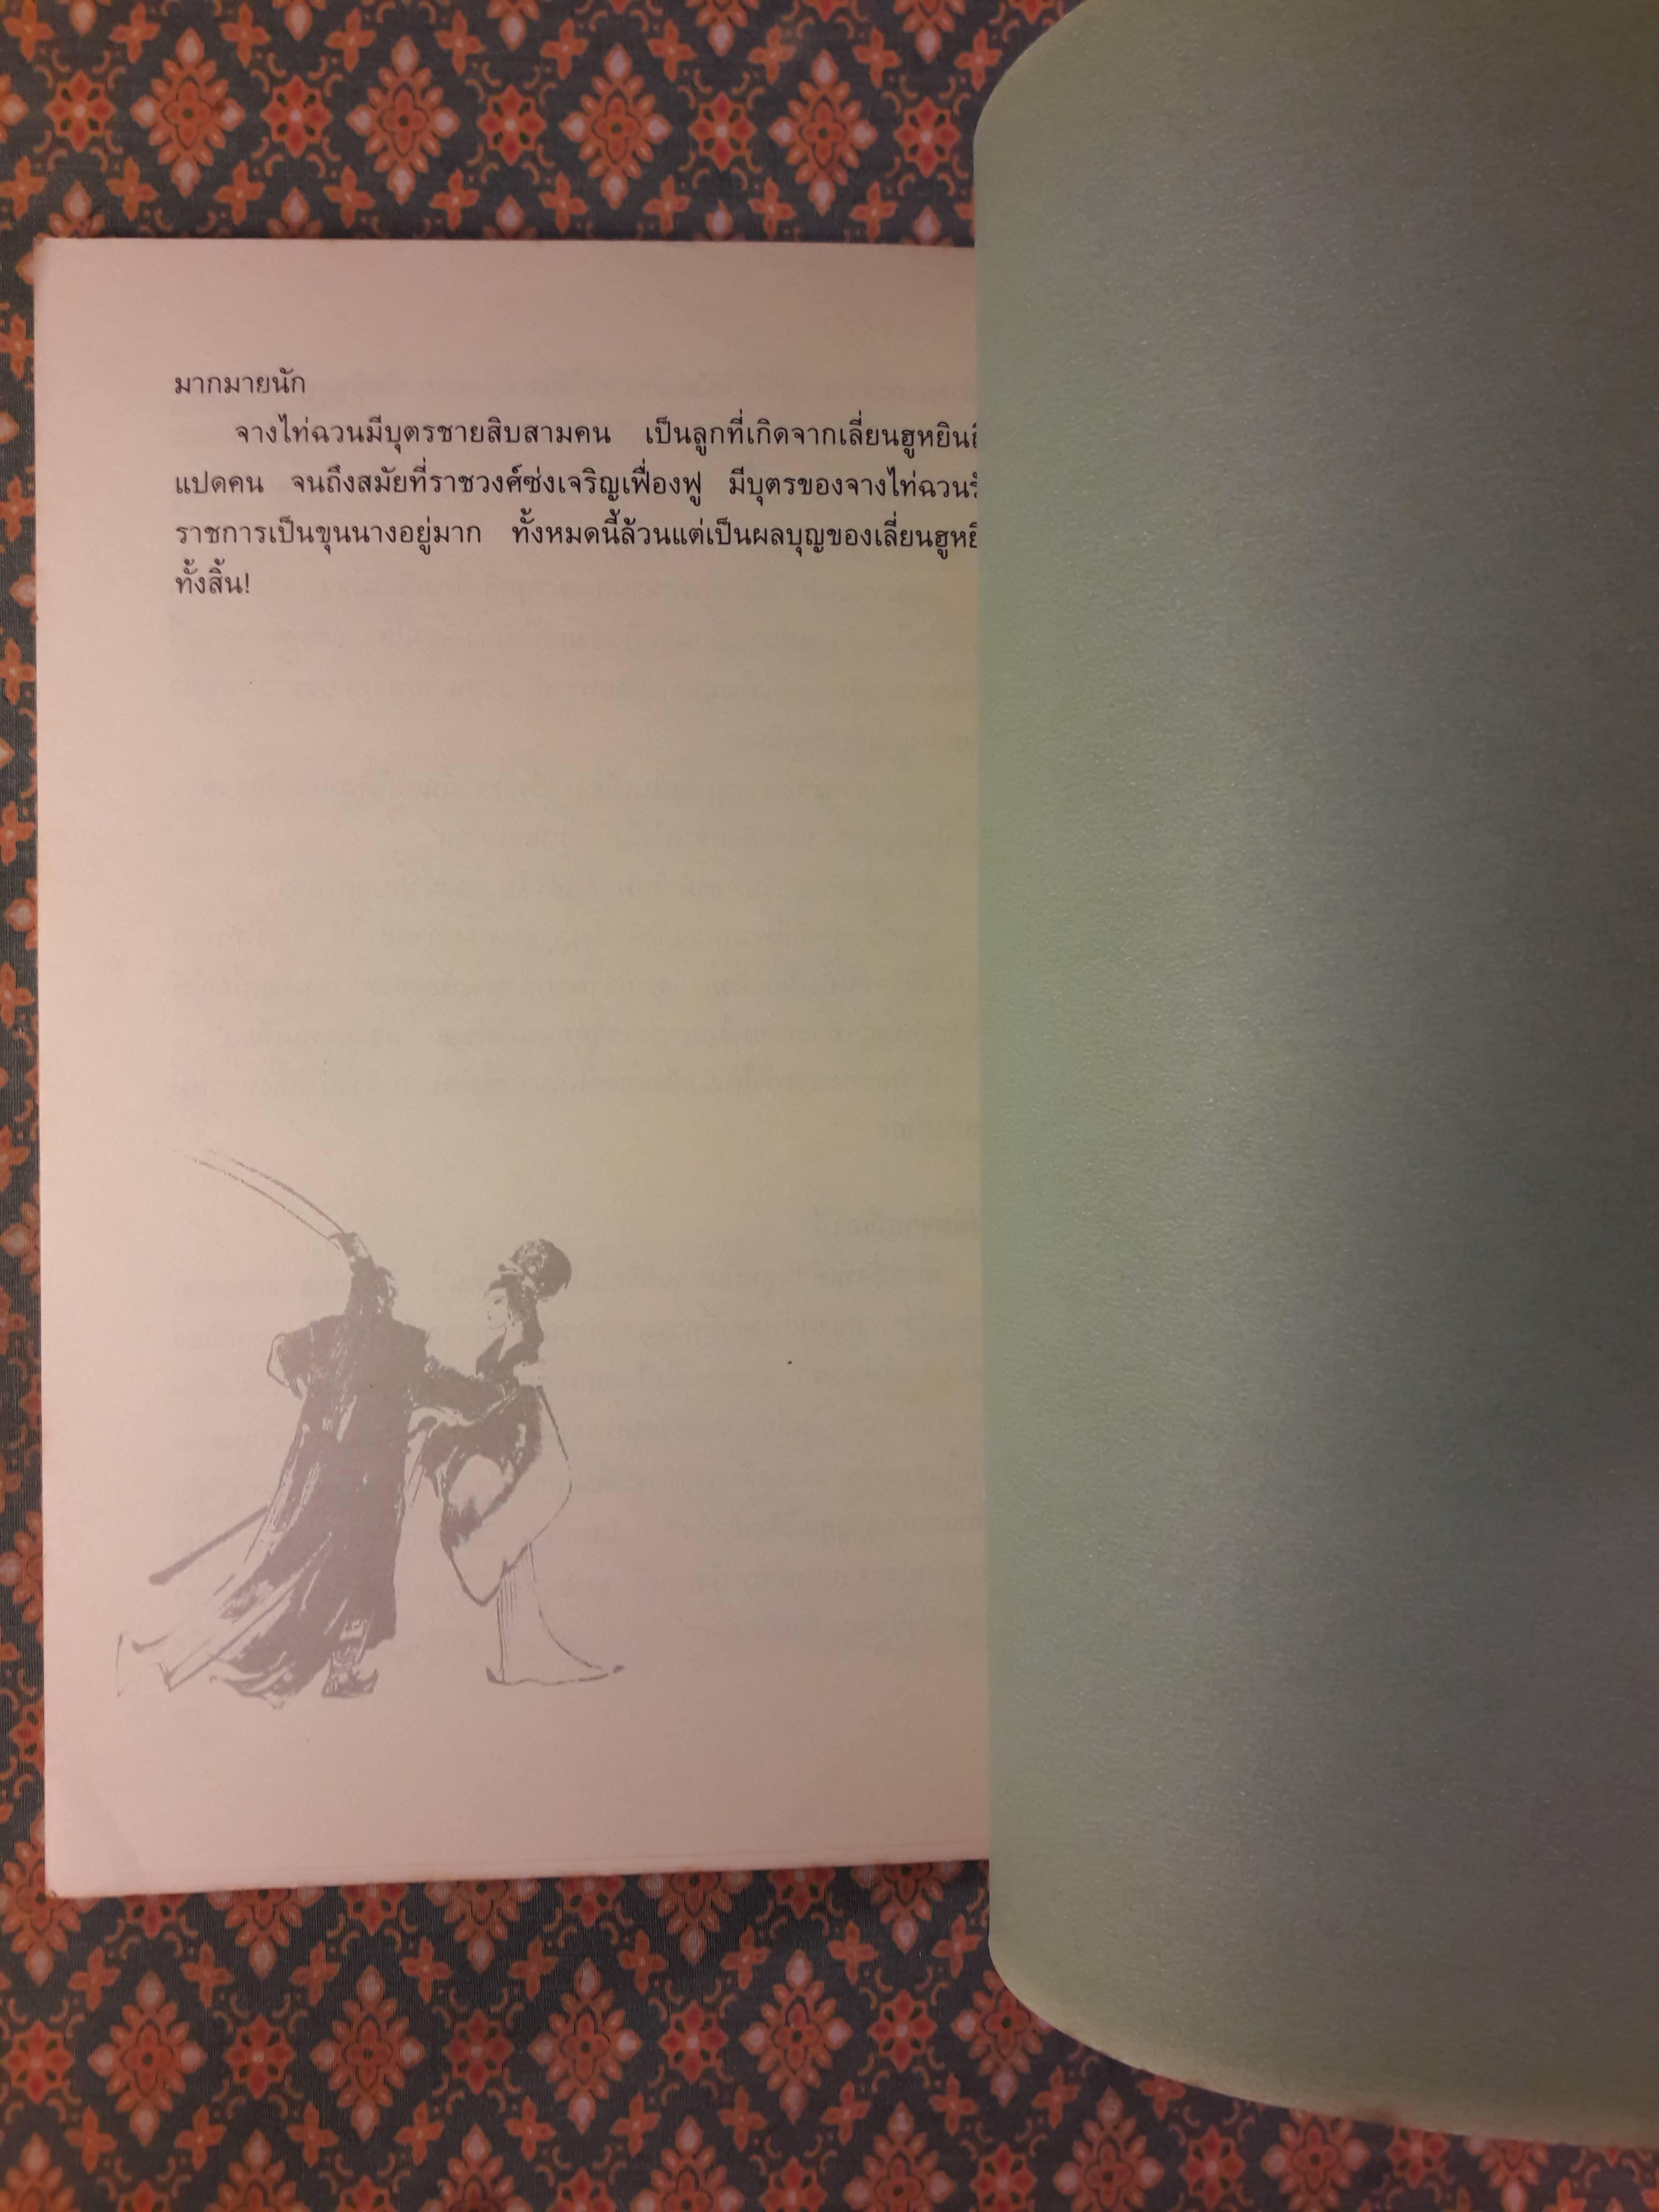 มากมายนัก
จางไท่ฉวนมีบุตรชายสิบสามคน เป็นลูกที่เกิดจากเลี่ยนฮูหยิน
แปดคน จนถึงสมัยที่ราชวงศ์ซ่งเจริญเฟื่องฟู มีบุตรของจางไท่ฉวน
ราชการเป็นขุนนางอยู่มาก ทั้งหมดนี้ล้วนแต่เป็นผลบุญของเลี่ยนฮูหยิ
ทั้งสิ้น!